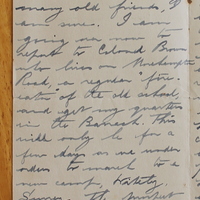 many old friends, I
am sure. I am
going on now to
report to Colonel Brown
who lives on Northampton
Road, a regular "fire-
eater" of the old school,
and get my quarters
in the Barracks. This
will only be for a
few days as we under
orders to march to a
new camp,
The prospect